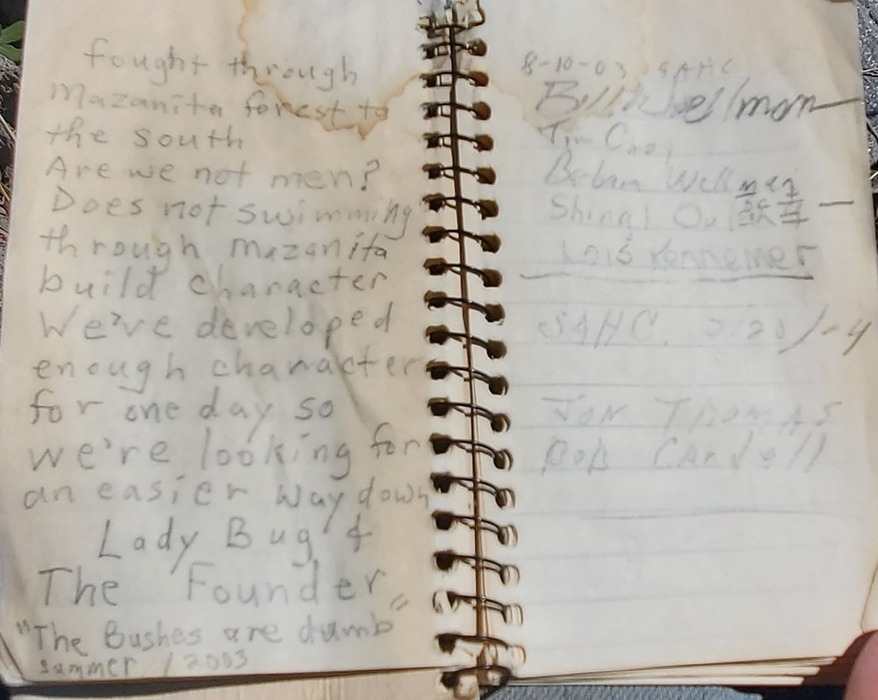 fought through
Mazanita forest to
the south
Are we not men?
Does not swimming
through mazanita
build character
We've developed
enough character
for one day so
we're looking for
an easier way down
Lady Bug &
The Founder
"The Bushes are dumb"
summer / 2003
8-10-03 SAHC
Bill Wellman
Tim
Barbara Wellman
Lois Kennemer
SAHC
Jon Thomas
Bob